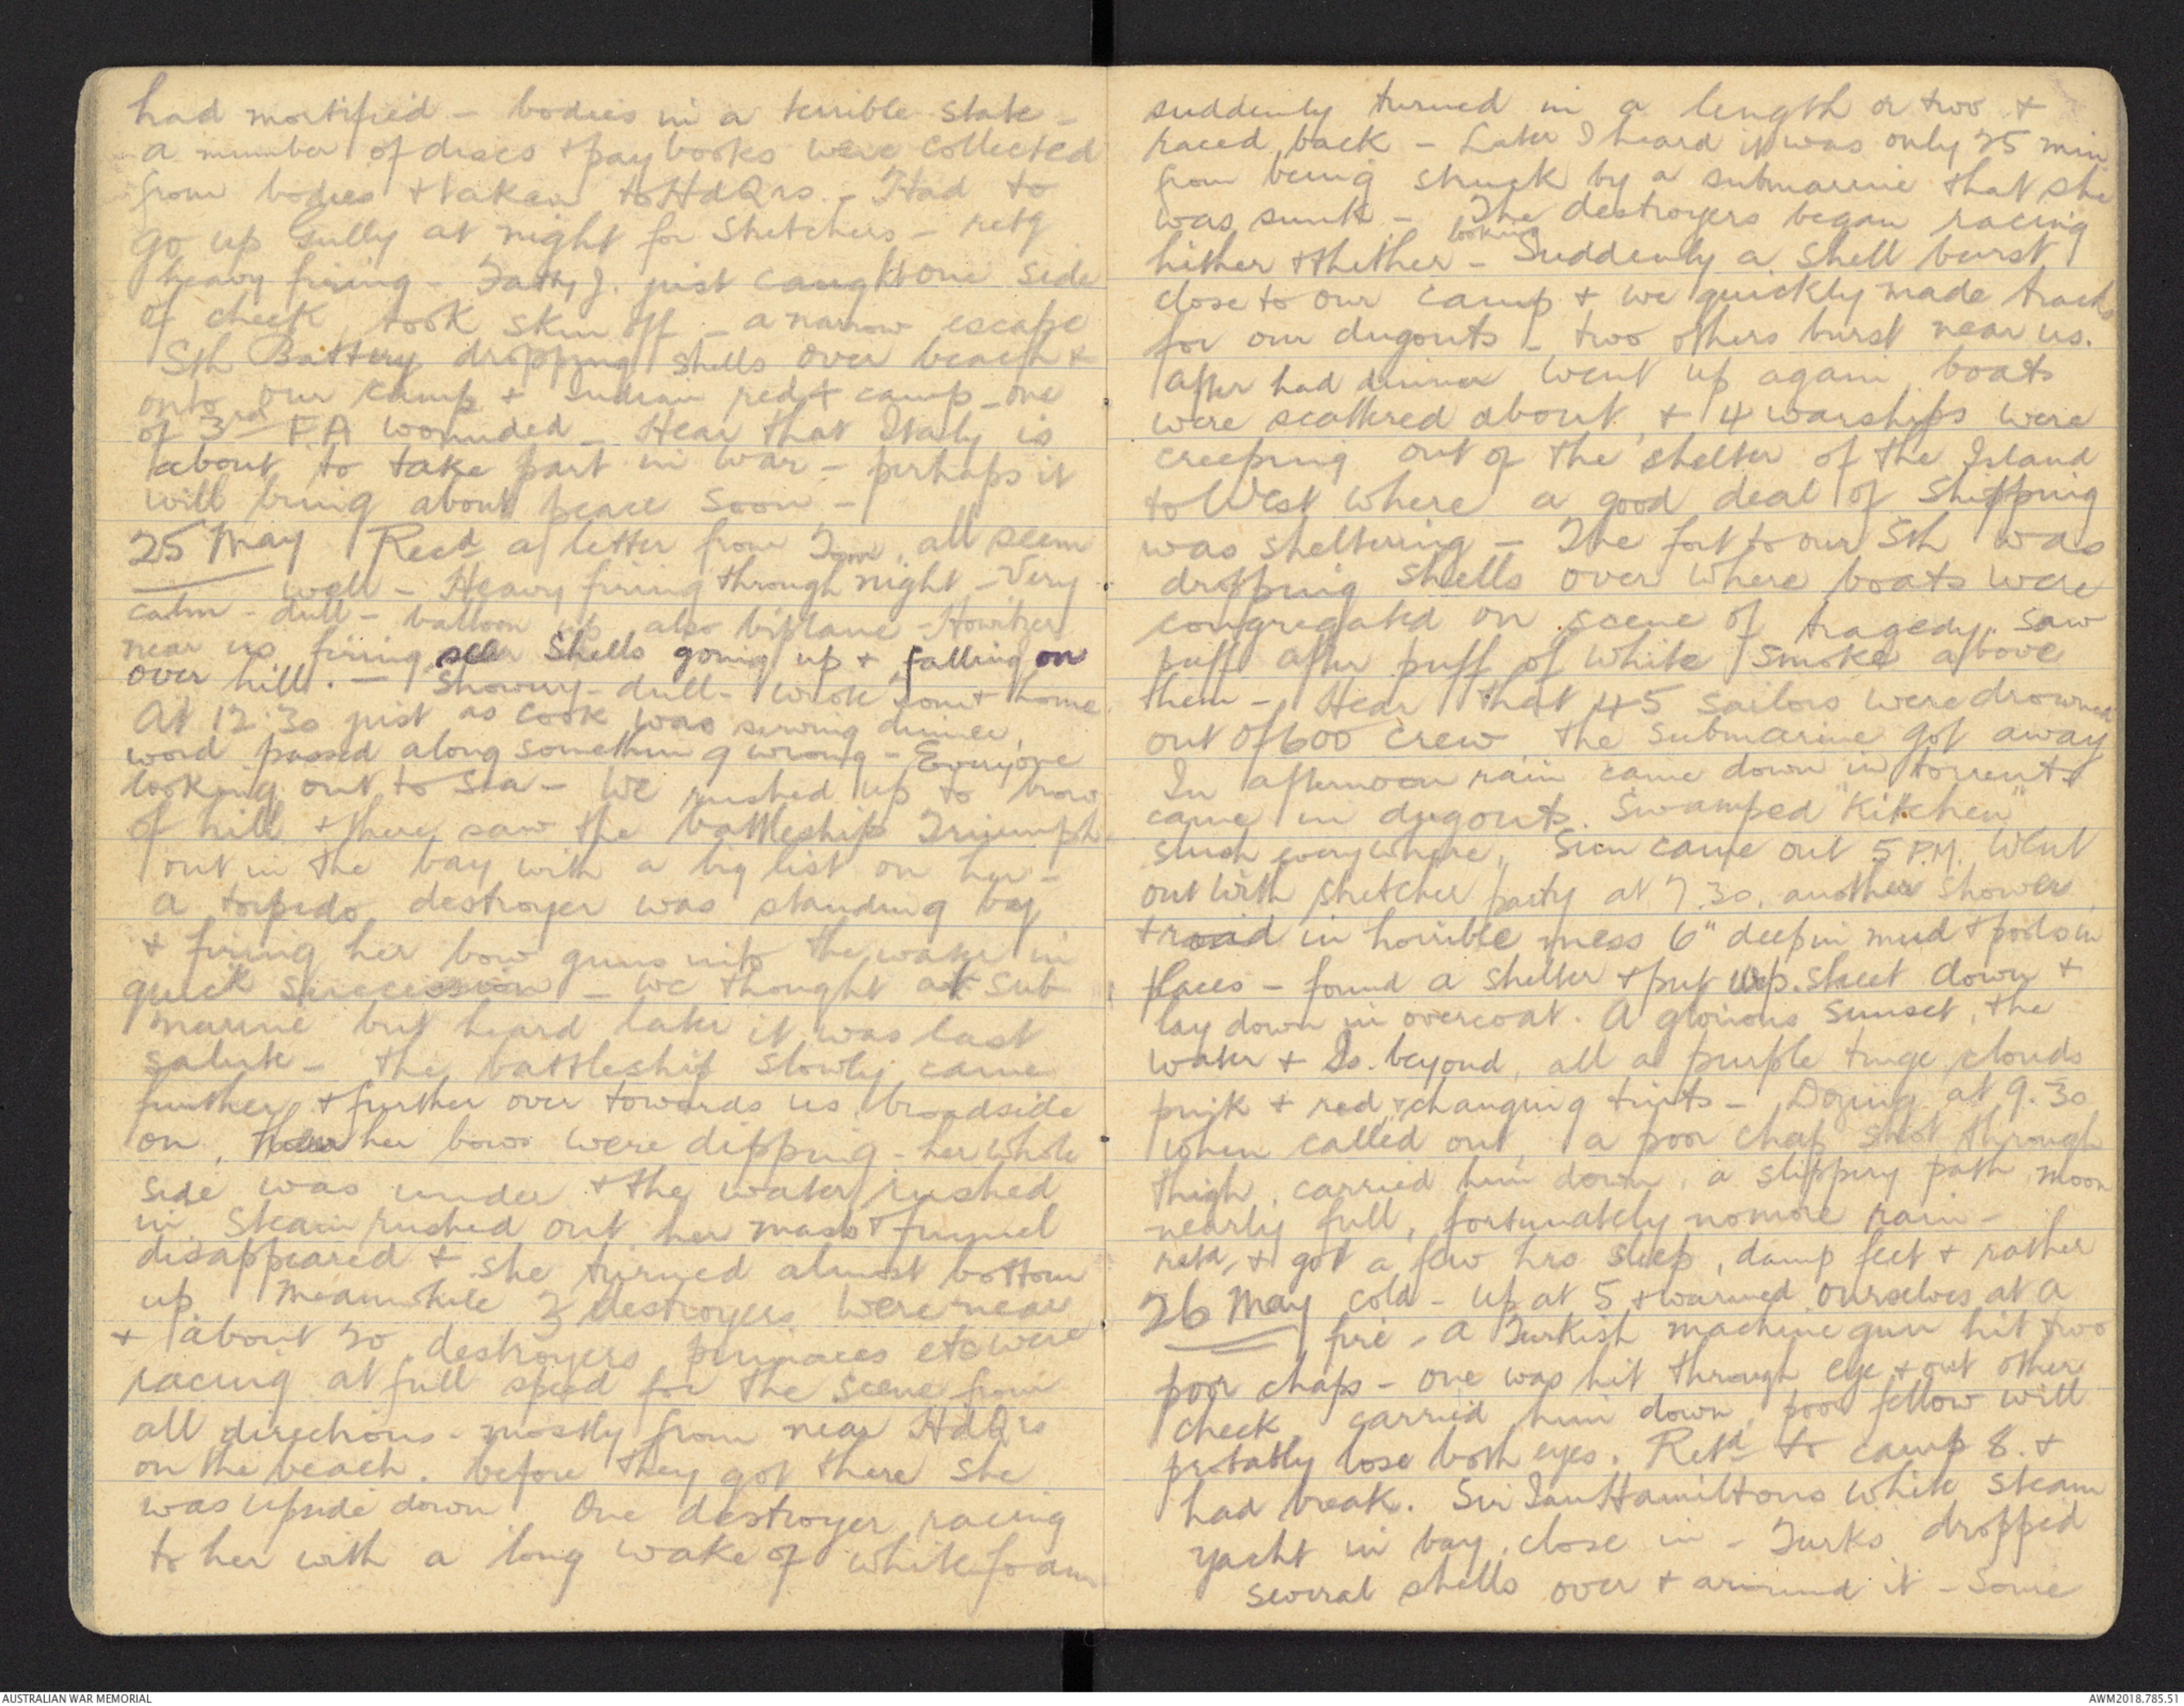 had mortified - bodies in a terrible state -
a number of discs + paybooks were collected
from bodies + taken to HdQrs - Had to
go up Gully at night for Stretchers - retg
heavy firing - Fatty J. just caught one side
of cheek, took skin off - a narrow escape
Sth Battery dropping shells over beach +
onto our camp + Indian red + camp - one
of 3rd F.A wounded - Hear that Italy is
about to take part in war - perhaps it
will bring about peace soon -
25 May Recd a letter from Tom, all seem
well - Heavy firing through night - Very
calm - dull - balloon up also biplane - Howitzer
near us firing, see Shells going up + falling on
over hill. - Showery - dull - wrote Tom + home
At 12.30 just as cook was serving dinner,
word passed along something wrong - Everyone
looking out to sea - We rushed up to brow
of hill + there saw the battleship Triumph
out in the bay with a big list on her -
a torpedo destroyer was standing by
+ firing her bow guns into the wake in
quick succession - we thought at Sub
marine but heard later it was last
salute - the battleship slowly came
further + further over towards us, broadside
on, her bows were dipping - her whole
side was under + the water rushed
in. Steam rushed out her masts + funnel
disappeared + she turned almost bottom
up. Meanwhile 3 destroyers were near
+ about 20 destroyers pinnaces etc were
racing at full speed for the scene from
all directions - mostly from near HdQrs
on the beach. before they got there she
was upside down One destroyer racing
to her with a long wake of white foam
suddenly turned in a length or two +
raced back - Later I heard it was only 25 min
from being struck by a submarine that she
was sunk - The destroyers began racing
looking
hither + thither - Suddenly a Shell burst
close to our camp + we quickly made tracks
for our dugouts - two others burst near us.
After had dinner went up again boats
were scattered about, + 4 warships were
creeping out of the shelter of the Island
to West where a good deal of Shipping
was sheltering - The fort to our Sth was
dropping Shells over where boats were
congregated on scene of tragedy. Saw
puff after puff of white smoke above
them - Hear that 45 sailors were drowned
out of 600 crew the submarine got away
In afternoon rain came down in torrents
came in dugouts. Swamped "Kitchen"
slush everywhere, Sun came out 5 P.M. Went
out with stretcher party at 7.30, another shower
+ road in horrible mess 6" deep in mud + pools in
places - found a shelter + put w.p. sheet down +
lay down in overcoat. A glorious Sunset, the
water + Is. beyond, all a purple tinge, clouds
pink + red + changing tints - Dozing at 9.30
when called out, a poor chap shot through
thigh, carried him down, a slippery path, moon
nearly full, fortunately no more rain -
retd, + got a few hrs sleep, damp feet + rather
26 May cold - up at 5 + warmed ourselves at a
fire - a Turkish machine gun hit two
poor chaps - one was hit through eye + out other
cheek carried him down, poor fellow will
probably lose both eyes. Retd to camp 8. +
had break. Sir Ian Hamiltons white Steam
yacht in bay, close in - Turks dropped
several shells over + around it - Some
AUSTRALIAN WAR MEMORIAL
AWM2018.785.51